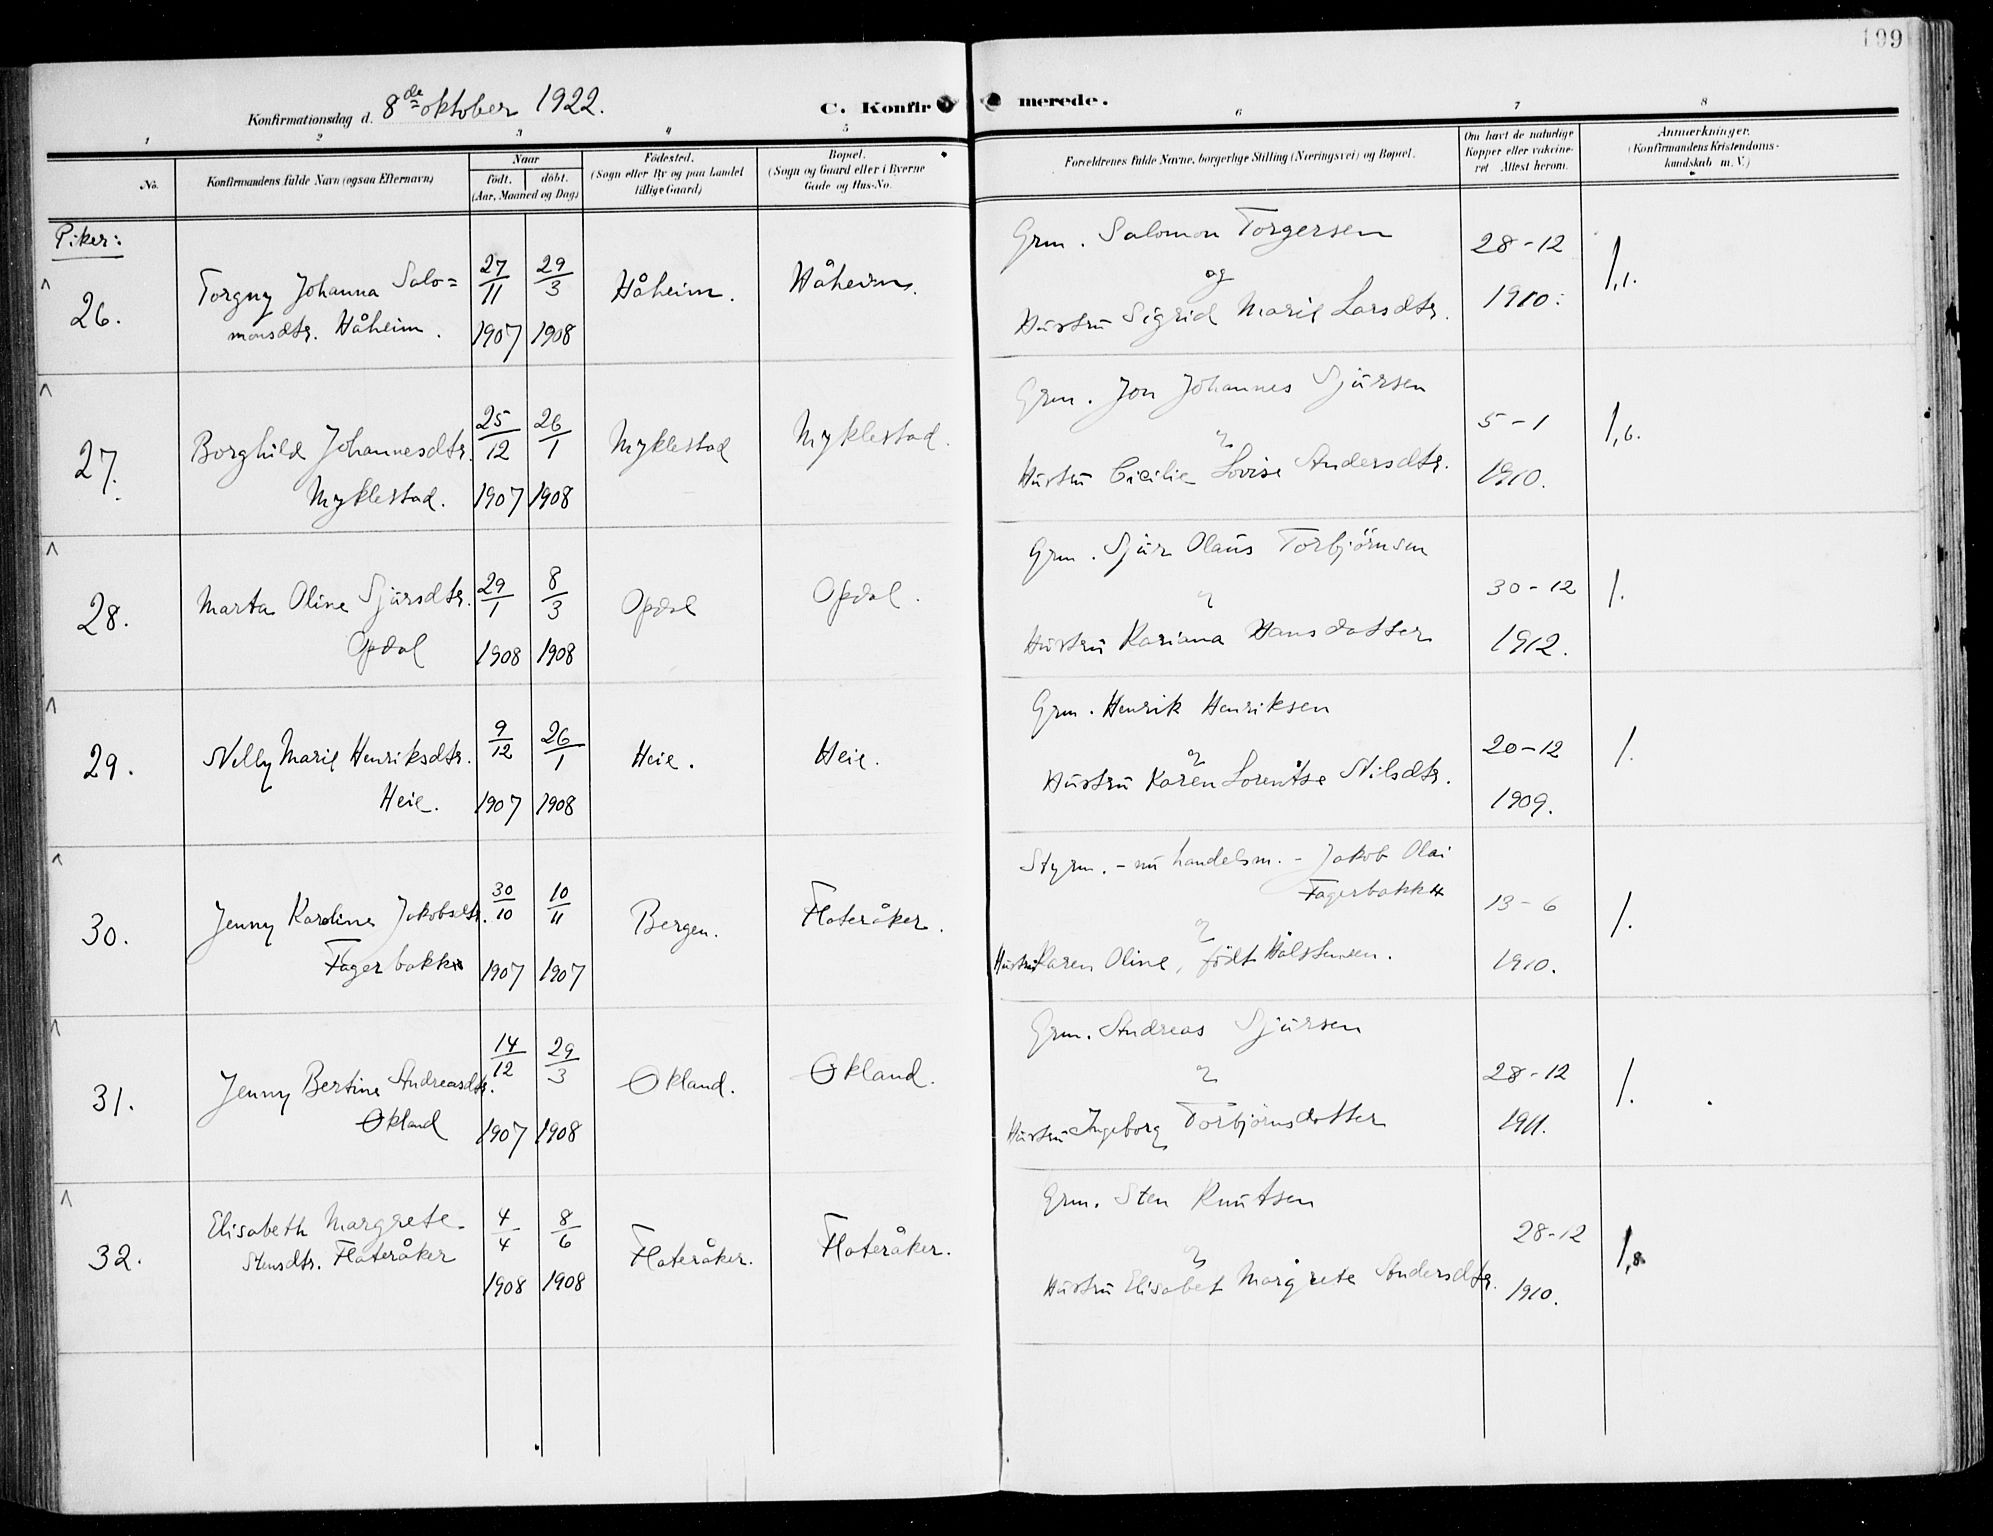 199
Konfirmationsdag d. 8de oktober 1922.
C. Konfir
merede.
1 2 3 4 5 6 7 8
No.
Konfirmandens fulde Navn (ogsaa Efternavn)
Naar
født. døbt.
(Aar, Maaned og Dag)
Fødested.
(Sogn eller By og paa Landet
tillige Gaard)
Bopæl.
(Sogn og Gaard eller i Byerne
Gade og Hus-No.
Forældrenes fulde Navne, borgerlige Stilling (Næringsvei) og Bopæl.
Om havt de naturlige
Kopper eller vakcine-
ret Attest herom.
Anmærkninger.
(Konfirmandens Kristendoms-
kundskab m. V.)
Piker:
26.
Torgny Johanna Salo=
monsdtr. Håheim.
27/11 1907
29/3 1908
Håheim.
Håheim.
Grm. Salomon Torgersen
og
Hustru Sigrid Marie Larsdtr.
28-12
1910.
27.
Borghild Johannesdtr.
Myklestad.
25/12 1907
26/1 1908
Myklestad
Myklestad.
Grm. Jon Johannes Sjursen
Hustru Cicilie Lovise Andersdtr.
5-1
1910.
28.
Marta Oline Sjursdtr.
Opdal
29/1 1908
8/3 1908
Opdal
Opdal.
Grm. Sjur Olaus Torbjörnsen
Hustru Kariana Hansdatter
30-12
1912.
1.
29.
Nelly Marie Henriksdtr.
Heie.
9/12 1907
26/1 1908
Heie.
Heie.
Grm. Henrik Henriksen
Hustru Karen Lorentse Nilsdtr.
20-12
1909.
1.
30.
Jenny Karoline Jakobsdtr.
Fagerbakke
30/10 1907
10/11 1907
Bergen.
Flateråker.
Styrm. - nu handelsm. - Jakob Olai
Fagerbakke
Hustru Karen Oline, født
13-6
1910.
1.
31.
Jenny Bertine Andreasdtr.
Økland
14/12 1907
29/3 1908
Økland.
Økland.
Grm. Andreas Sjursen
Hustru Ingeborg Torbjörnsdatter
28-12
1911.
1.
32.
Elisabeth Margrete
Stensdtr. Flateråker
4/4 1908
8/6 1908
Flateråker.
Flateråker.
Grm. Sten Knutsen
Hustru Elisabet Margrete Andersdtr.
28-12
1910.